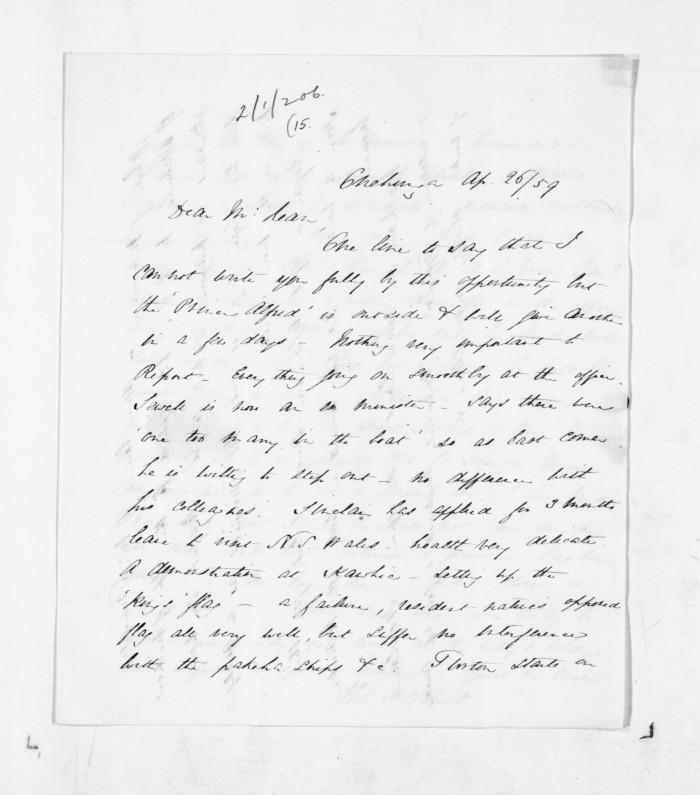 2/1/206.
(15.
Onehunga Ap. 26/59
Dear McLean
One line to say that I
cannot write you fully by this opportunity but
the 'Prince Alfred' is outside & will give another
in a few days - Nothing very important to
Report - Every thing going on smoothly at the office.
Sewell is now an ex minister - says there were
'one too many in the boat' so as last comer
he is willing to step out - no difference with
his colleagues. Sinclair has applied for 3 months
leave to visit N.S. Wales - health very delicate.
A demonstration at Kawhia - Setting up the
'King's flag' - a failure, resident natives opposed
flag all very well, but suffer no interference
with the pakeha ships &c. Turton starts on